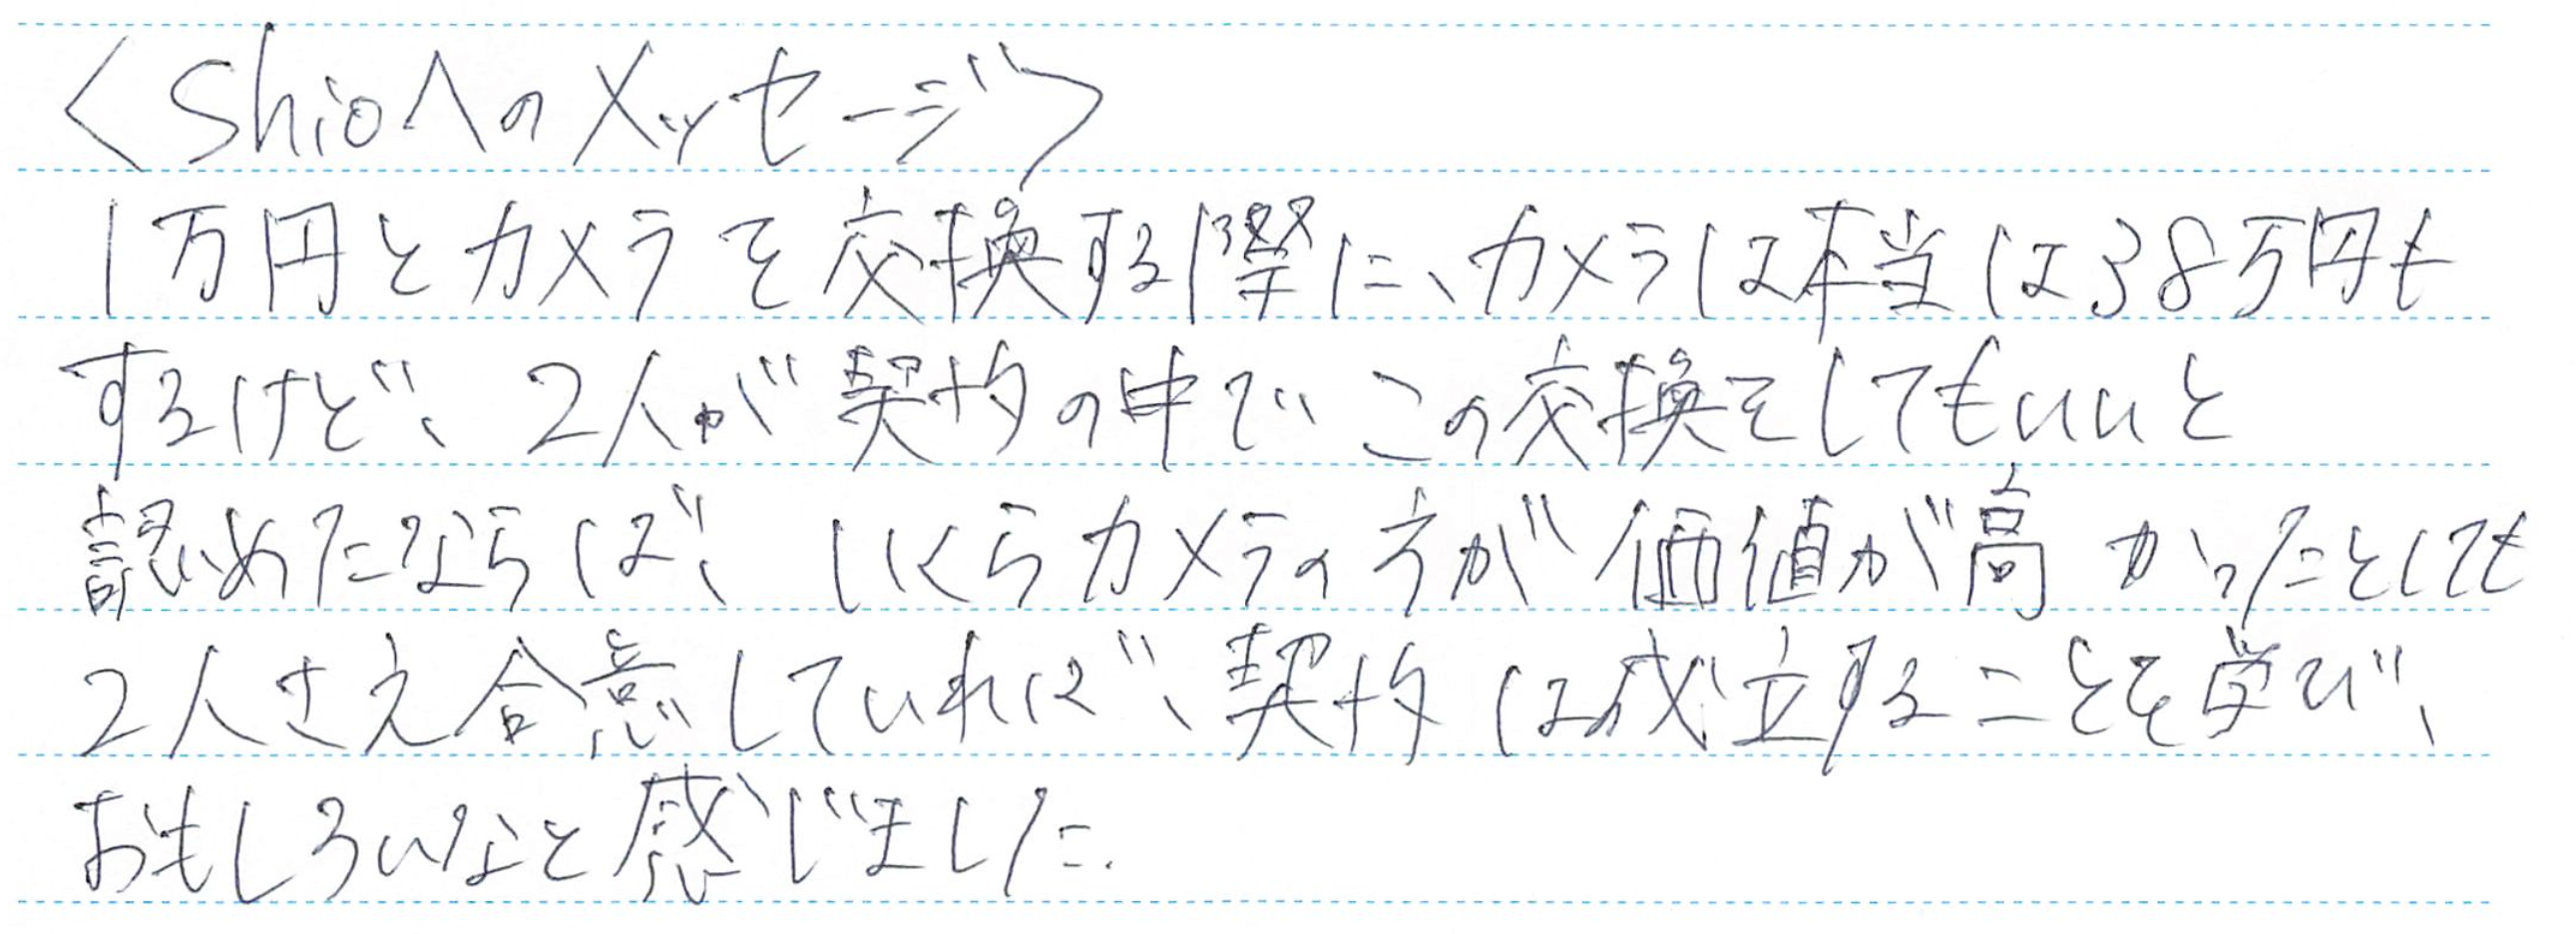 <Shioへのメッセージ>
1万円とカメラを交換する際に、カメラは本当は38万円も
するけど、2人が契約の中でこの交換をしてもいいと
認めたならば、いくらカメラの方が価値が高かったとしても
2人さえ合意していれば、契約は成立することを学び、
おもしろいなと感じました.